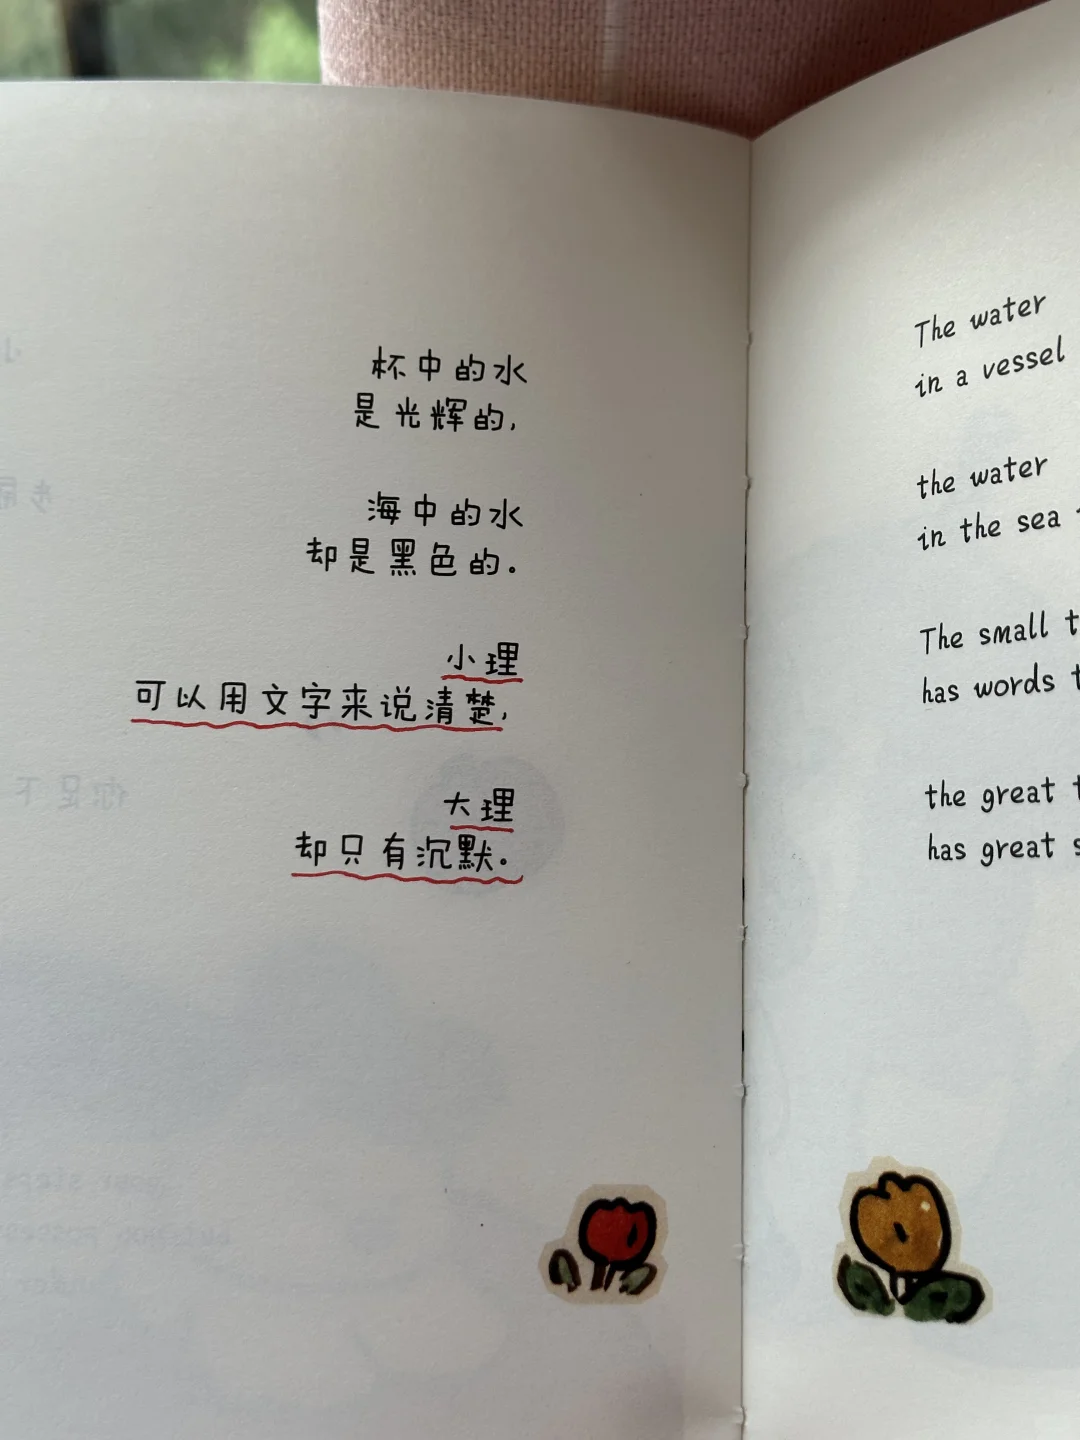 杯中的水
是光辉的,
海中的水
却是黑色的.
小理
可以用文字来说清楚,
大理
却只有沉默.
The water
in a vessel
the water
in the sea
The small
has words
the great
has great